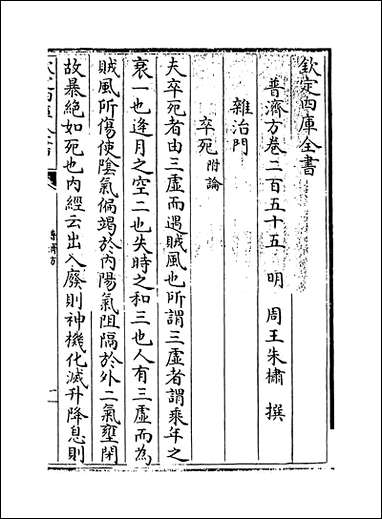 欽定四庫全書
普濟方卷二百五十五　明　周王朱橚　撰
雜治門
卒死附論
夫卒死者由三虛而遇賊風也所謂三虛者謂乘年之
衰一也逢月之空二也失時之和三也人有三虛而為
賊風所傷使陰氣偏竭於內陽氣阻隔於外二氣壅閉
故暴絕如死也內經云出入廢則神機化滅升降息則
普濟方